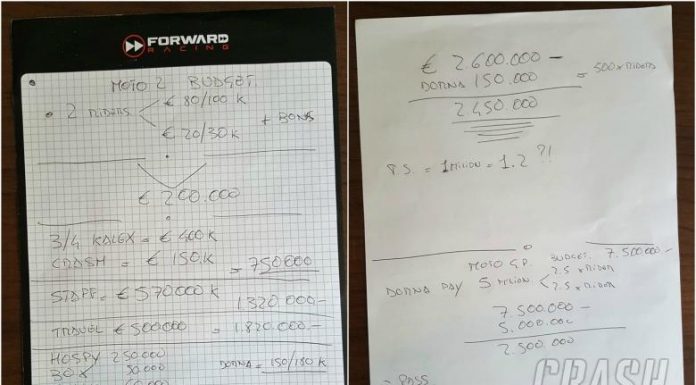 FORWARD
RACING
MOTO 2 BUDGET
2 RIDERS € 80/100 K
€ 20/30 K + BONUS
€ 200.000
3/4 KALEX = € 400 K
CRASH = € 150.K = 750000
STAFF = € 570000 K 1.320.000-
TRAVEL € 500000 = 1.820.000.-
HOSPY 250.000
BOX 50.000 DORNA = 150/180 K
€ 2.600.000 -
DORNA 150.000 = 500 x RIDER
2.450.000
P.S. = 1 MILION = 1.2 ?!
MOTO G.P. BUDGET: 7.500.000-
DORNA PAY 5 MILION < 2.5 x RIDER
2.5 x RIDER
7.500.000-
5.000.000
2.500.000
= PASS
CRASH